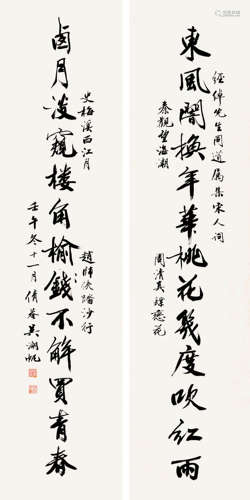 東風闇換年華桃花幾度吹紅雨
先生同道屬集宋人詞
秦觀望海潮
周清真蝶戀花
西月淡窺樓角榆錢不解買青春
史梅溪西江月
趙師俠踏沙行
壬午冬十一月倩菴吳湖帆